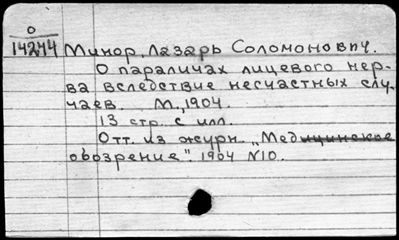 О
14244 Минор, Лазарь Соломонович.
О параличах лицевого нер-
ва вследствие несчастных слу-
чаев. М., 1904.
13 стр. с илл.
Отт. из журн. „Медицинское
обозрение". 1904 N10.